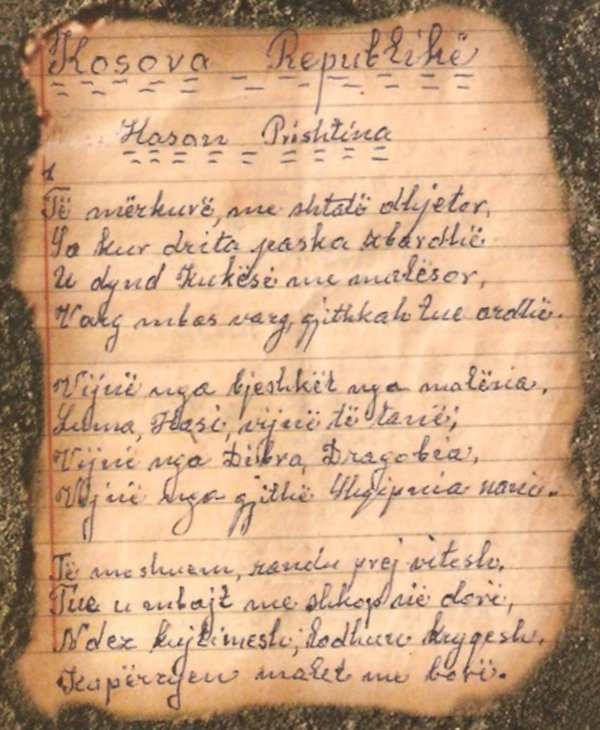 Kosova Republikë
Hasan Prishtina
1
Të mërkurë, me shtatë dhjetor,
Sa kur drita paska zbardhë
U dynd Kukësi me malësor,
Varg mbas varg, gjithkah tue ardhë.
Vijnë nga bjeshkët nga malësia,
Luma, Hasi, vijnë të tanë;
Vijnë nga Dibra, Dragobia,
Vijnë nga gjithë Shqipnia nanë.
Të moshuem, randu prej vitesh,
Tue u mbajt me shkop në dorë,
Ndez kujtimesh, lodhun krygesh,
Kapërcyen malet me borë.